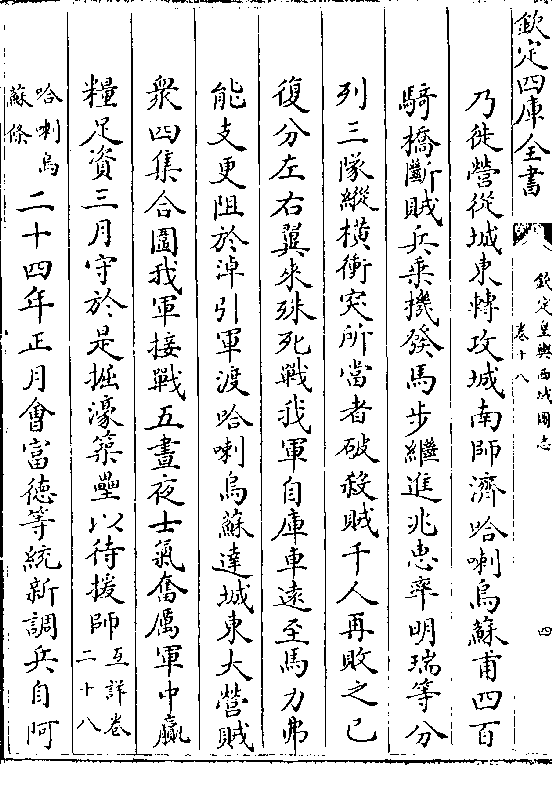 欽定四庫全書
欽定皇輿西域圖志
卷十八
四
乃徙營從城東轉攻城南師濟哈喇烏蘇甫四百
騎橋斷賊兵乗機發馬步繼進兆惠率明瑞等分
列三隊縱橫衝突所當者破殺賊千人再敗之已
復分左右翼來殊死戰我軍自庫車逺至馬力弗
能支更阻於淖引軍渡哈喇烏蘇達城東大營賊
衆四集合圍我軍接戰五晝夜士氣奮厲軍中贏
糧足資三月守於是掘濠築壘以待援師互詳卷二十八
哈喇烏蘇條二十四年正月會富德等統新調兵自阿